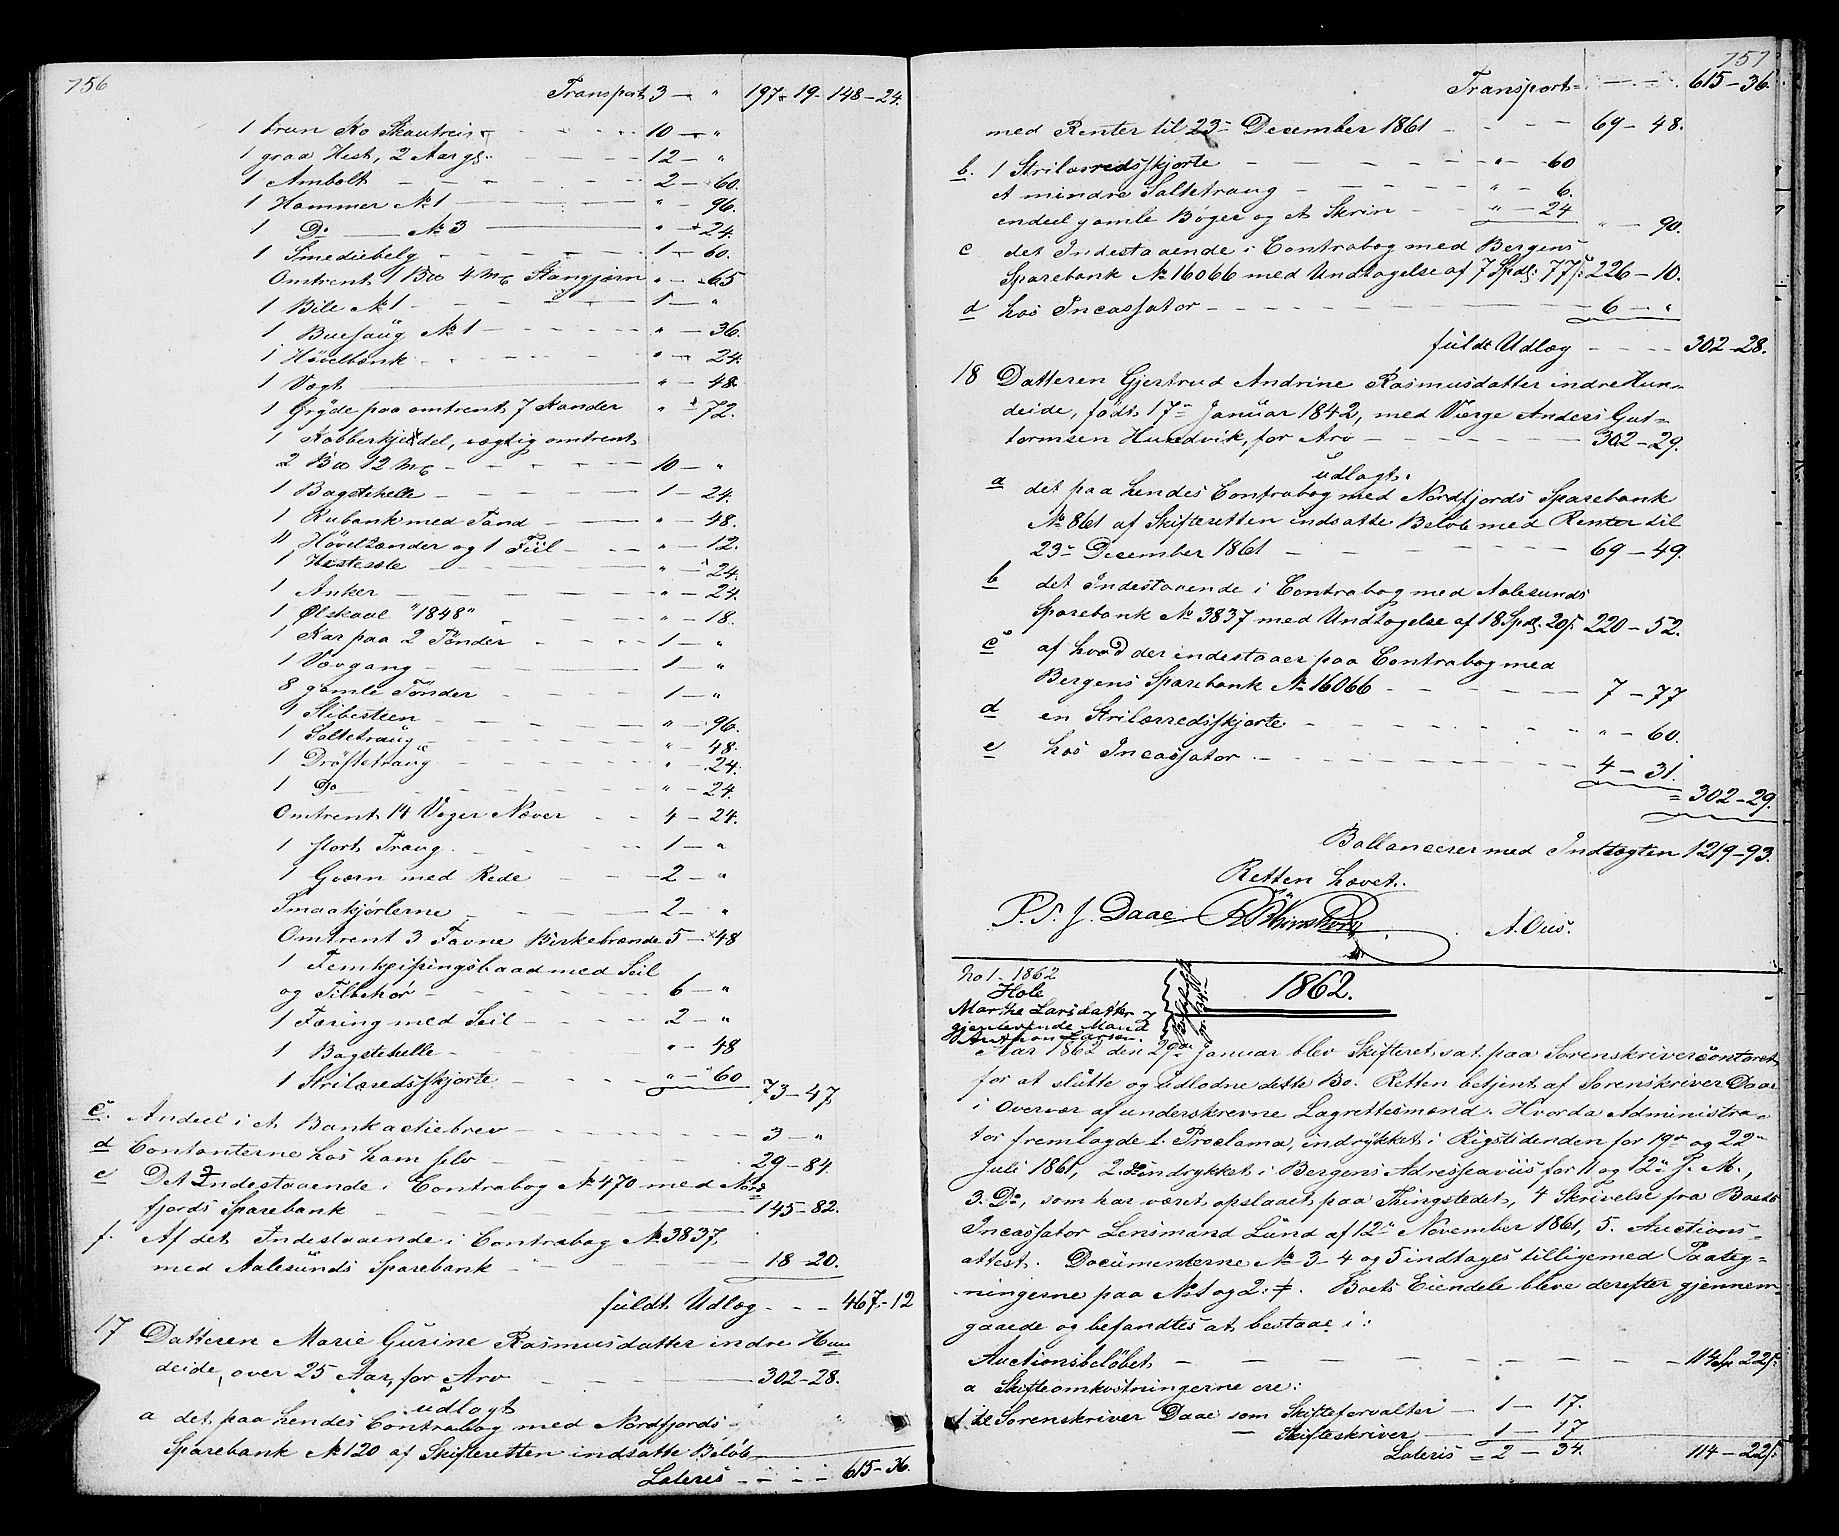 756
Transport 3 — " 197 - 19 - 148 - 24.
1 brun Ko Skautrei - - - 10 — "
1 graa Hest, 2 Aar gl: - - - 12 — "
1 Ambolt - - - 2 — 60.
1 Hammer No 1 - - - " — 96.
1 Do — No 3 — " — 24.
1 Smediebelg - - - 1 — 60.
Omtrent 1 B℔ 4 mk Stangjern " — 65
1 Bile No 1 - - - 1 — "
1 Buesaug No 1 - - - " — 36.
1 Høvelbænk - - - " — 24.
1 Vægt — " — 48.
1 Gryde paa omtrent 7 Kander " — 72.
1 Kobberkjedel, vægtig omtrent
2 B℔ 12 mk - - - 10 — "
1 Bagstehelle - - - 1 — 24.
1 Rubank med Tand - — " — 48.
4 Høveltænder og 1 Fiil - - - " — 12.
1 Hestesele - - - " — 24.
1 Anker - - - " — 24.
1 Ølskaal "1848" - - - " — 18.
1 Kar paa 2 Tønder - - - 1 — "
1 Vævgang - - - 1 — "
8 gamle Tønder - - - 1 — "
1 Slibesteen - - - " — 96.
1 Saltetraug - - - " — 48.
1 Drøftetraug - - - " — 24.
1 Do — - - - " — 24.
Omtrent 14 Voger Næver - - 4 — 24.
1 stort Traug - - - 1 — "
1 Qværn med Rede - - - 2 — "
Smaakjørlerne - - - 2 — "
Omtrent 3 Favne Birkebrænde 5 — 48
1 Femkeipingsbaad med Seil
og Tilbehør - - - 6 — "
1 Færing med Seil - - - 2 — "
1 Bagstehelle - - - " — 48
1 Strilæredsskjorte - - - " — 60 73 — 47
c. Andeel i et Bankactiebrev - - - 3 — "
d Contanterne hos ham selv - - - 29 — 84.
e Det Indestaaende i Contrabog No 470 med Nord-
fjords Sparebank - - - 145 — 82.
f. Af det Indestaaende i Contrabog No 3837
med Aalesunds Sparebank - - - 18 — 20.
fuldt Udlæg - - - 467 - 12
17 Datteren Marie Gurine Rasmusdatter indre Hun
deide, over 25 Aar, for Arv - - - 302 — 28.
udlagt
a det paa hendes Contrabog med Nordfjords
Sparebank No 120 af Skifteretten indsatte Beløb
Lateris - - - 615 — 36.
757
Transport - - - 615 — 36.
med Renter til 23de December 1861 - - - 69 — 48.
b. 1 Strilærredsskjorte - - - " — 60
et mindre Saltetraug - - - " — 6.
endeel gamle Bøger og et Skrin - - " — 24 " — 90.
c det Indestaaende i Contrabog med Bergens
Sparebank No 16066 med Undtagelse af 7 Spdlr 77 s: 226 — 10.
d hos Incassator - - - 6 — "
fuldt Udlæg - - - 302 — 28.
18 Datteren Gjertrud Andrine Rasmusdatter indre Hun-
deide, født 17de Januar 1842, med Værge Anders Gut-
tormsen Hundvik, for Arv - - - 302 — 29.
udlagt:
a det paa hendes Contrabog med Nordfjords Sparebank
No 861 af Skifteretten indsatte Beløb med Renter til
23de December 1861 - - - 69 — 49.
b det Indestaaende i Contrabog med Aalesunds
Sparebank No 3837 med Undtagelse af 18 Spdlr 20 s: 220 — 52.
c af hvad der indestaaer paa Contrabog med
Bergens Sparebank No 16066 - - - 7 — 77
d en Strilærredsskjorte - - - " — 60.
e hos Incassator - - - 4 — 31.
= 302 — 29.
Ballancerer med Indtægten 1219 — 93.
Retten hævet.
P. S. J. Daae. A. Ous.
No 1 - 1862
Hole
Marthe Larsdatter
gjenlevende Mand
Anthon Larsen.
1862.
Aar 1862 den 29de Januar blev Skifteret sat paa Sorenskrivercontoret
for at slutte og udlodne dette Bo. Retten betjent af Sorenskriver Daae
i Overvær af underskrevne Lagrettesmænd. Hvorda Administra-
tor fremlagde 1. Proclama, indrykket i Rigstidenden for 19de og 22de
Juli 1861, 2. Do indrykket i Bergens Adresseavis for 11 og 12te J. M.,
3. Do, som har været opslaaet paa Thingstedet, 4 Skrivelse fra Boets
Incassator Lensmand Lund af 12te November 1861, 5. Auctions-
attest. Documenterne No 3 - 4 og 5 indtages tilligemed Paateg-
ningerne paa No 1 og 2. Boets Eiendele bleve derefter gjennem-
gaaede og befandtes at bestaae i:
Auctionsbeløbet - - - 114 Sp 22 s:
a Skifteomkostningerne ere:
1 til Sorenskriver Daae som Skifteforvalter — 1 — 17.
— Skifteskriver — 1 — 17
Lateris = 2 — 34. 114 — 22 s: